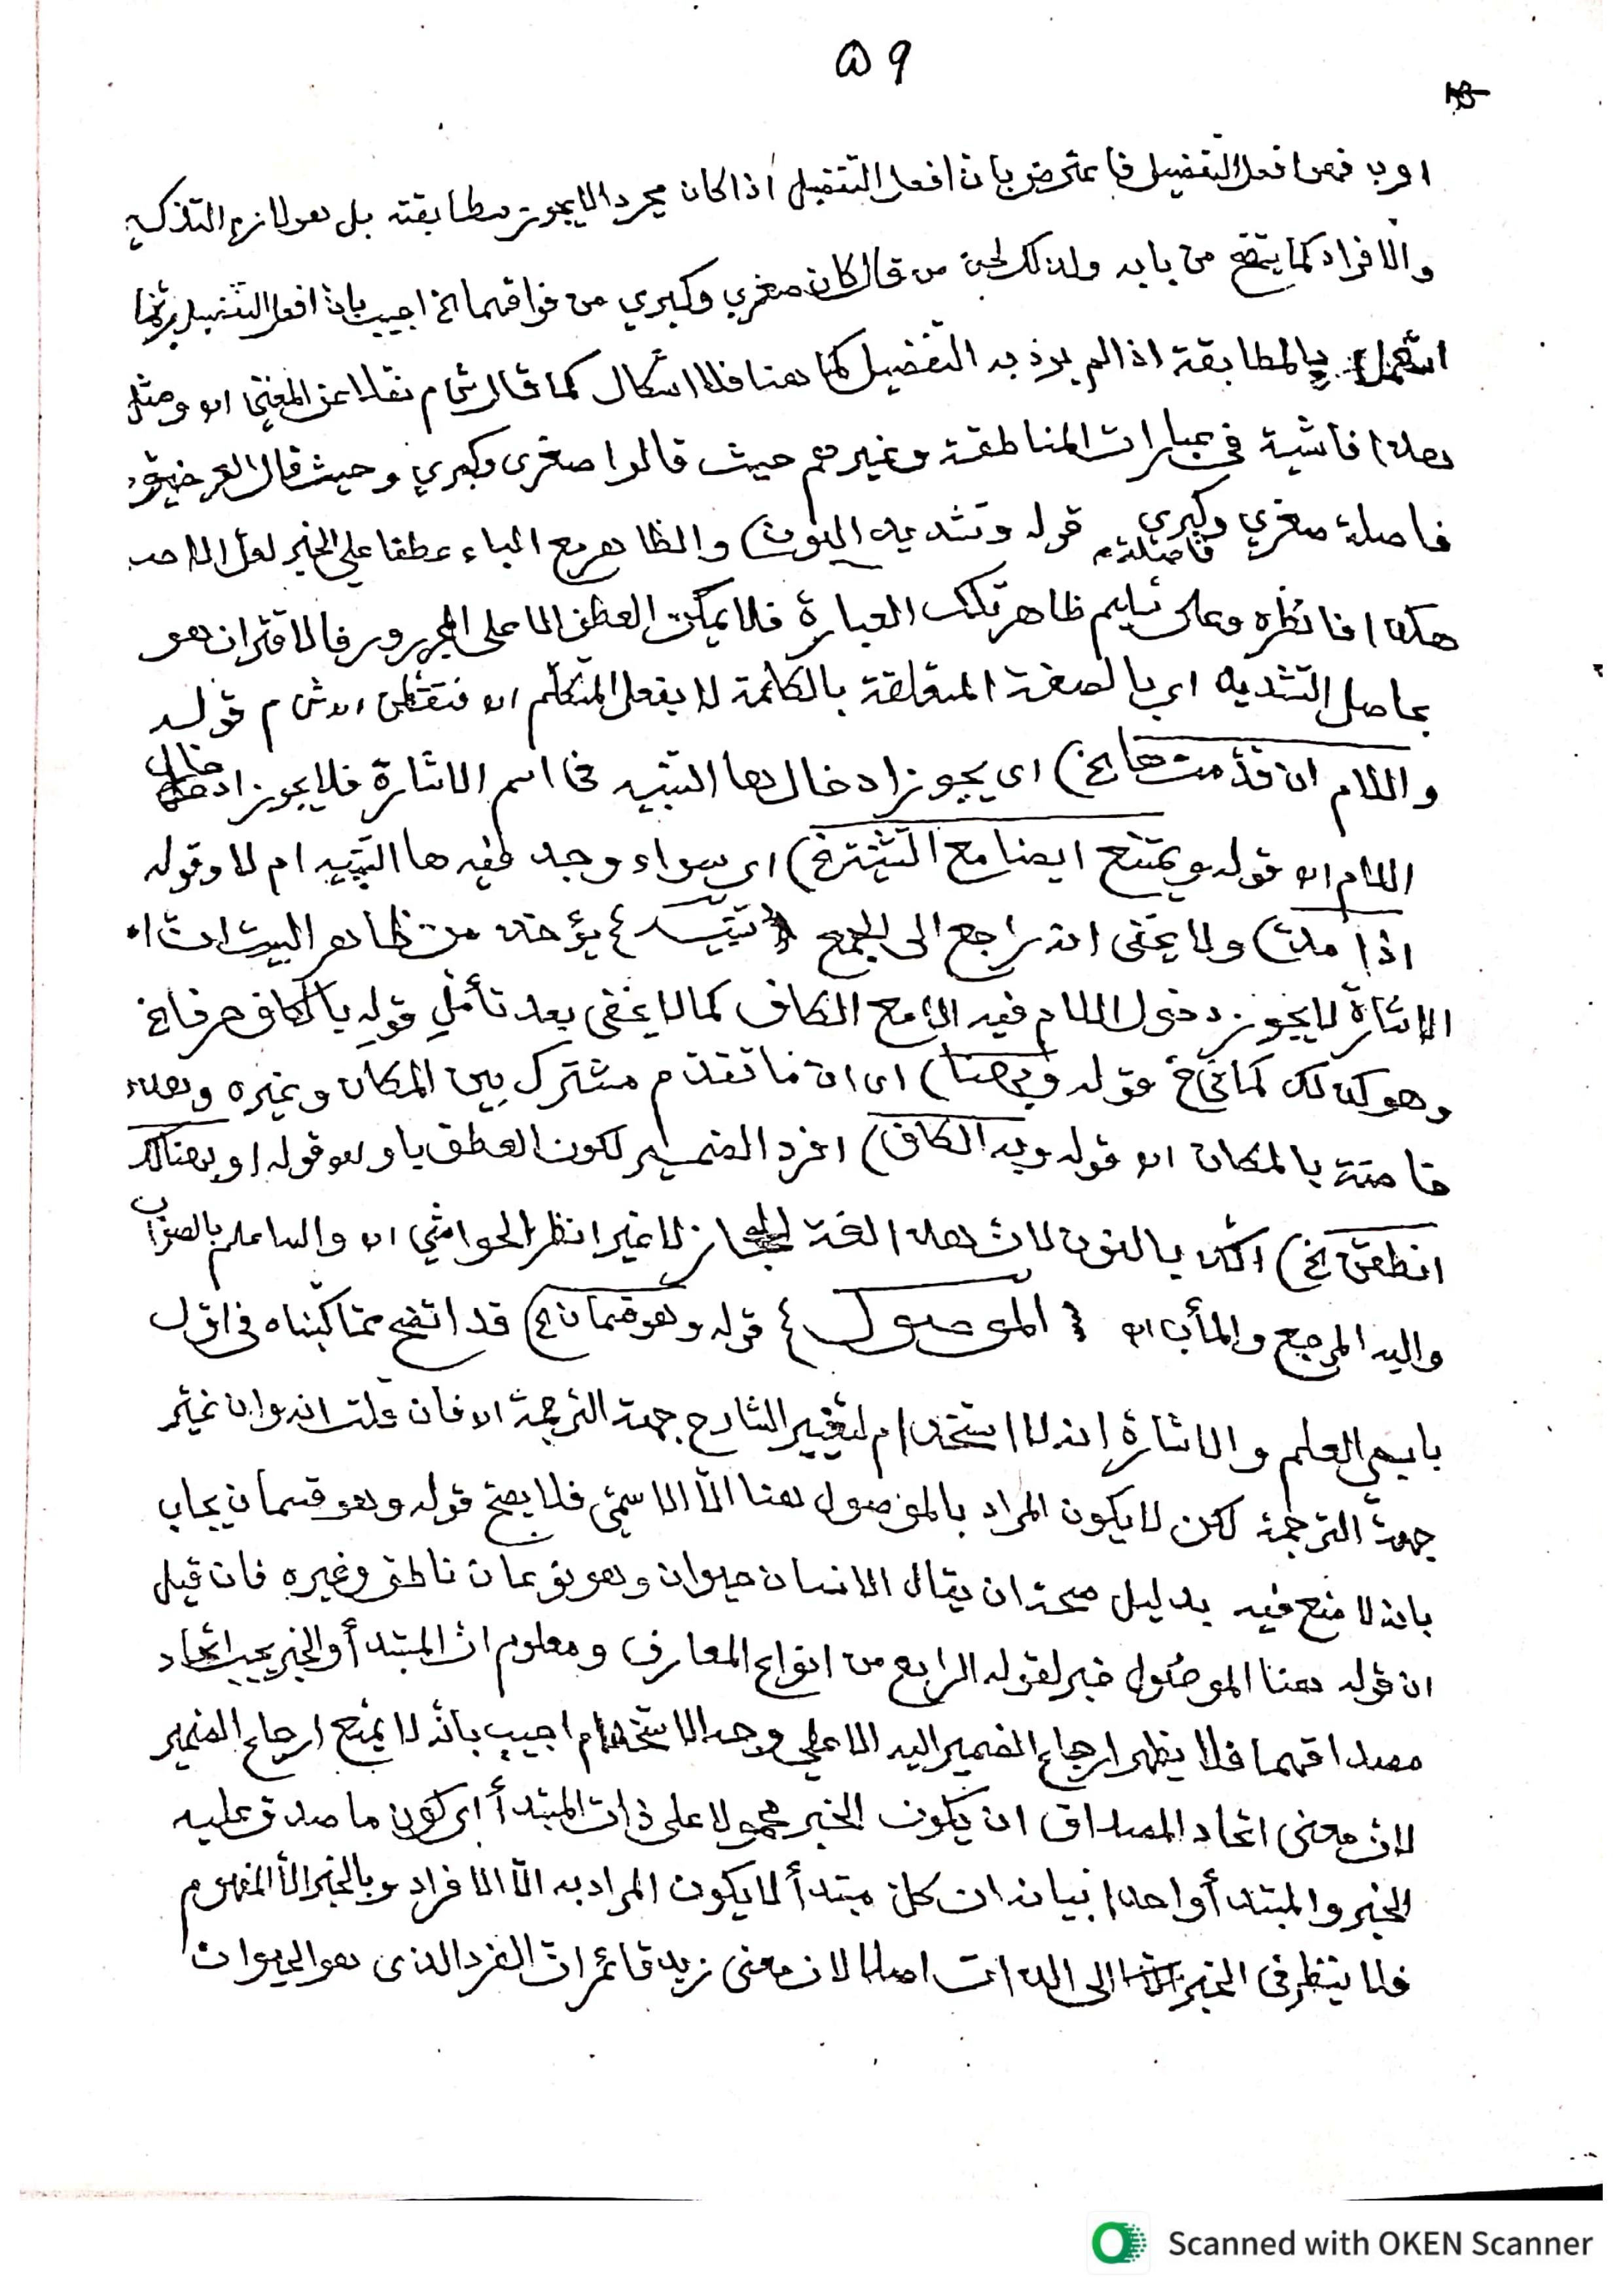 ٥٩
افعل التفضيل فاعترض بان افعل التفضيل اذا كان مجردا لا يجوز مطابقته بل هو لازم التذكير
والافراد كما يتضح من بابه ولذلك لحن من قال كان صغرى وكبرى من فواقعها الخ اجيب بان افعل التفضيل ربما
استعمل بالمطابقة اذا لم يرد به التفضيل كما هنا فلا اشكال كما قال ش م نقلا عن المغني اه ومثل
هذا فاشية في عبارات المناطقة وغيرهم حيث قالوا صغرى وكبرى وحيث قال العرضيون
فاصلة صغرى وفاصلة كبرى قوله وتشديد النون) والظاهر مع الباء عطفا على الخبر لعل الاصل
هكذا فانظره وعلى تسليم ظاهر تلك العبارة فلا يمكن العطف الا على المجرور فالاقتران هو
بحاصل التشديد اي بالصفة المتعلقة بالكلمة لا بفعل المتكلم اه فتفطن اه ش م قوله
واللام ان قدمت ها الخ) اى يجوز ادخال ها التنبيه في اسم الاشارة فلا يجوز ادخال
اللام اه قوله ويمتنع ايضا مع التثنية الخ) اى سواء وجد فيه ها التنبيه ام لا وقوله
اذا مدت) ولا يخفى انه راجع الى الجمع تنبيه يؤخذ من ظاهر البيت ان
الاشارة لا يجوز دخول اللام فيه الا مع الكاف كما لا يخفى بعد تأمل قوله بالكاف حرفا الخ
وهو كذلك كما في خ قوله وبهنا) اى ان ما تقدم مشترك بين المكان وغيره وهذه
خاصة بالمكان اه قوله وبه الكاف) افرد الضمير لكون العطف باو وهو قوله او بهنالك
انطقن الخ) اكد بالنون لان هذه لغة الحجاز لا غير انظر الحواشي اه والله اعلم بالصواب
واليه المرجع والمأب اه الموصول قوله وهو قسمان الخ) قد اتضح مما كتبناه في اول
بابي العلم والاشارة انه لا استخدام لتغيير الشارح جهة الترجمة اه فان قلت انه وان غير
جهة الترجمة لكن لا يكون المراد بالموصول هنا الا الاسمي فلا يصح قوله وهو قسمان يجاب
بانه لا منع فيه بدليل صحة ان يقال الانسان حيوان وهو نوعان ناطق وغيره فان قيل
ان قوله هنا الموصول خبر لقوله الرابع من انواع المعارف ومعلوم ان المبتدأ والخبر يجب اتحاد
مصداقهما فلا يظهر ارجاع الضمير اليه الا على وجه الاستخدام اجيب بانه لا يمنع ارجاع الضمير
لان معنى اتحاد المصداق ان يكون الخبر محمولا على ذات المبتدأ اى كون ما صدق عليه
الخبر والمبتدأ واحدا بيانه ان كل مبتدأ لا يكون المراد به الا الافراد وبالخبر الا المفهوم
فلا ينظر في الخبر الى الذات اصلا لان معنى زيد قائم ان الفرد الذى هو الحيوان
Scanned with OKEN Scanner